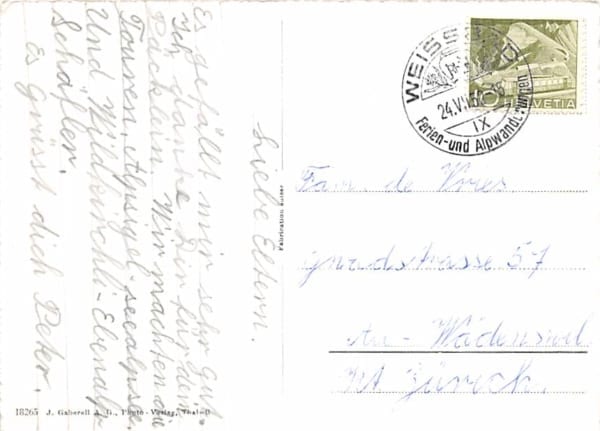 Liebe Eltern.
Es gefällt mir sehr gut
Ich danke Dir für den
Päcklein. Wir machten die
Touren, Alpsigel-seealpsee.
Und Wildkirchli-Ebenalp-
Schäfler.
Es grüsst dich Peter.
Fabrication suisse
18265 J. Gaberell A. G., Photo-Verlag, Thalwil
WEISSBAD
24.VII.
IX
Ferien- und Alpwanderungen
HELVETIA
Fam. de Vries.
strasse 57
Au - Wädenswil
Kt Zürich.